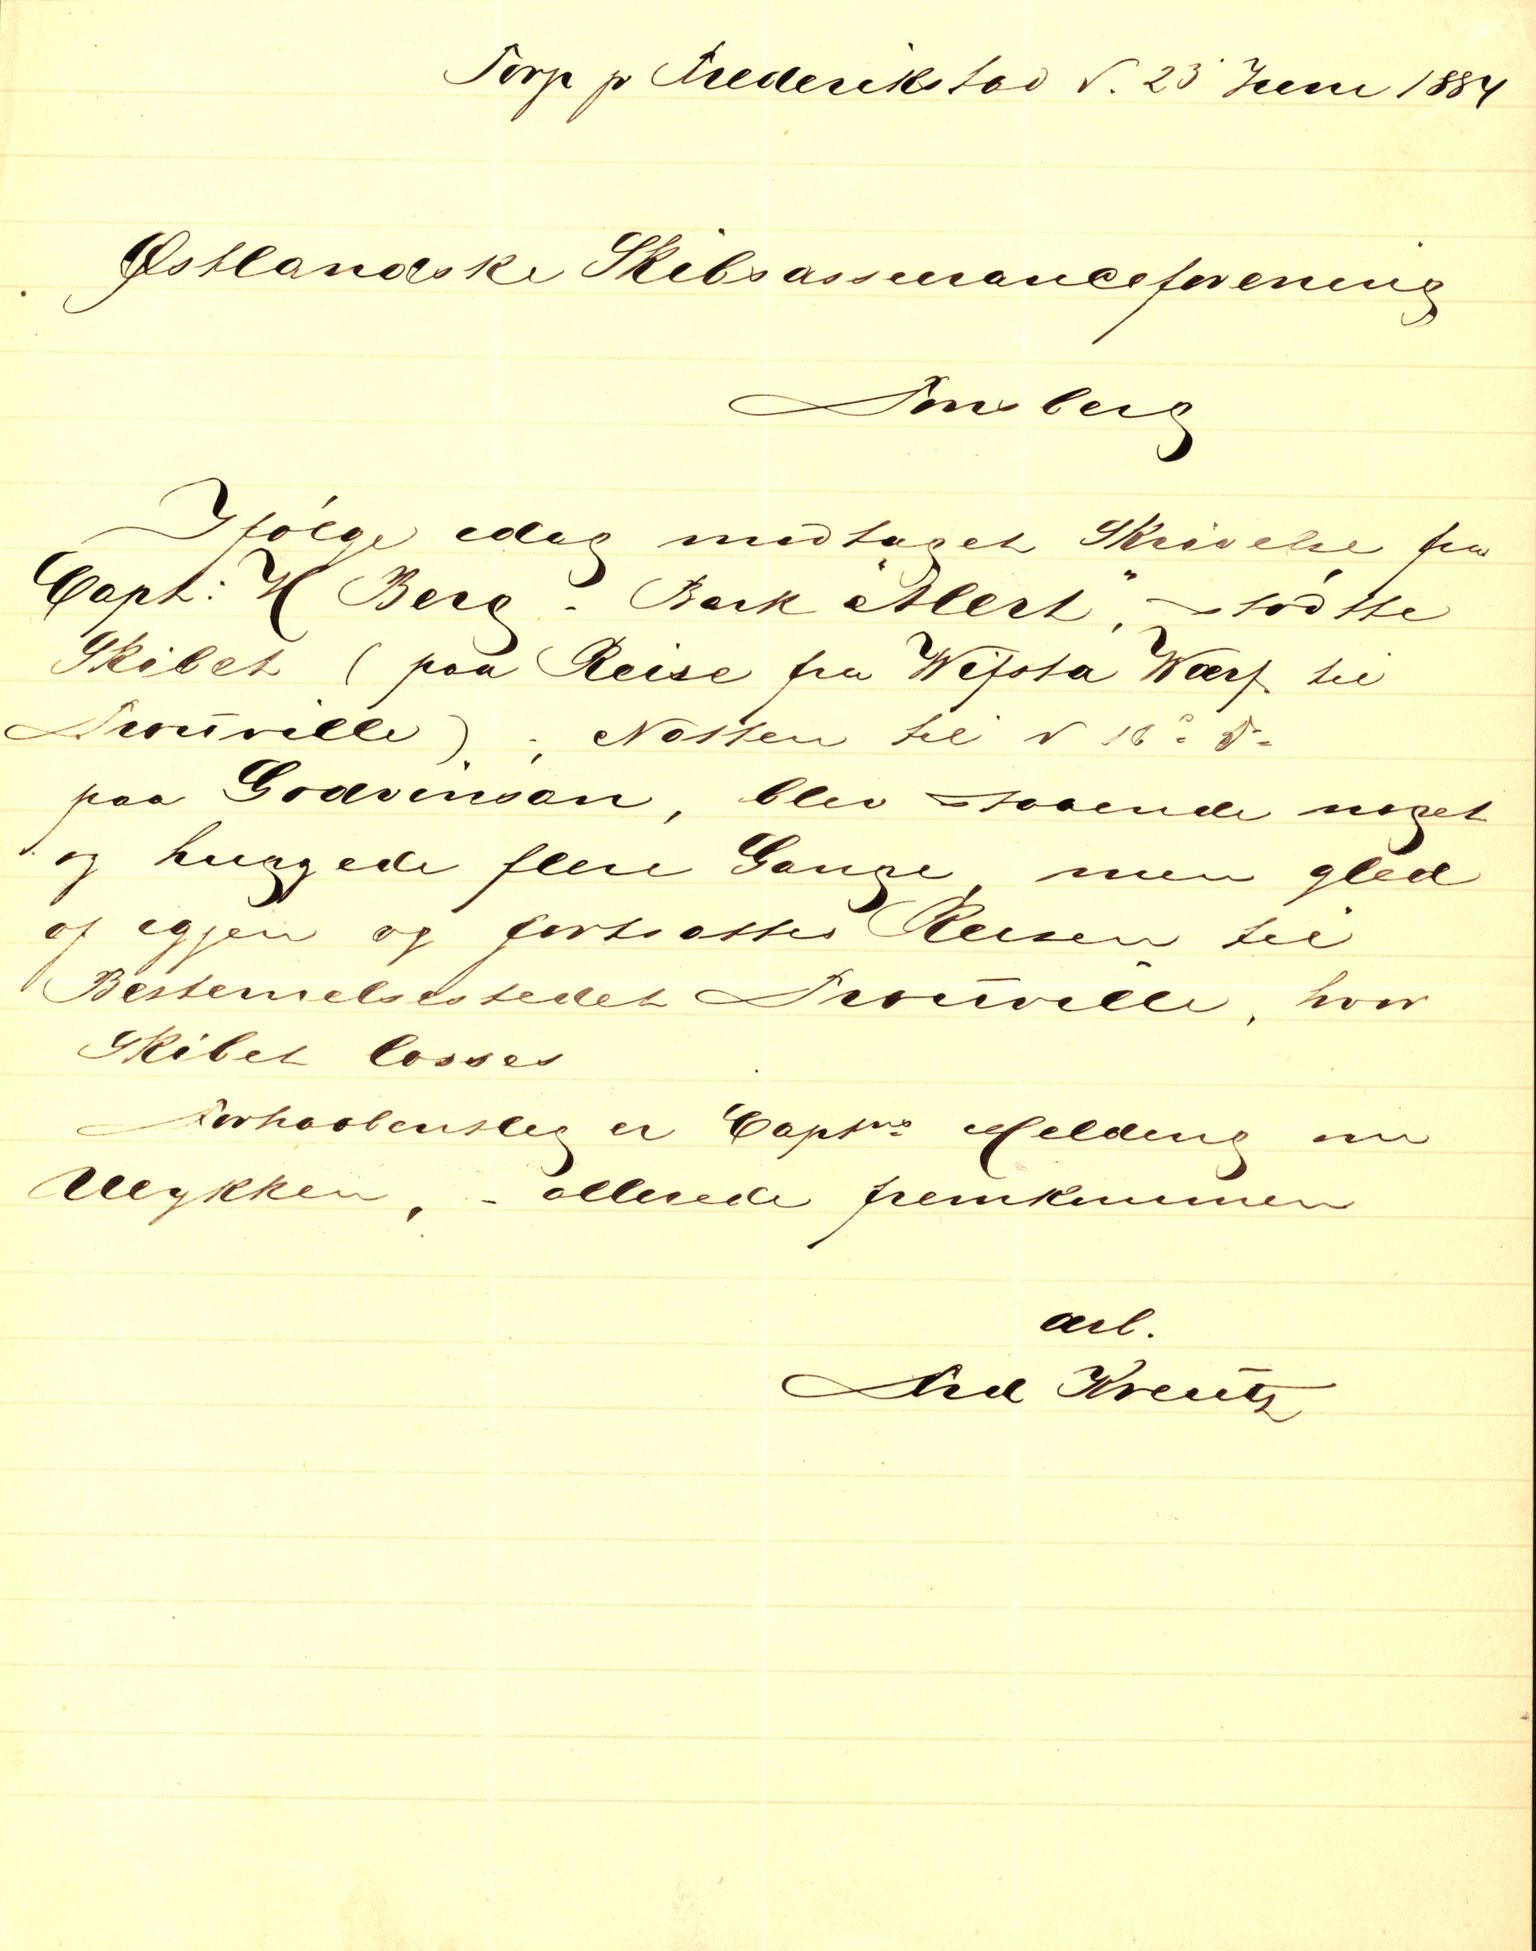 Torp pr Frederikstad d. 23 Juni 1884
Østlandske Skibsassuranceforening
Tønsberg
Ifølge idag modtaget Skrivelse fra
Capt: H Berg - Bark "Alert", stødtte
Skibet ( paa Reise fra Wifsta Warf til
Trouville ) , Natten til d
paa Grodvinsan, blev staaende noget
og huggede flere Gange, men gled
af igjen og fortsattes Reisen til
Bestemelsestedet Trouville, hvor
Skibet losses
Forhaabentlig er Captns Melding om
Ulykken, - allerede fremkommen
ærb.
Fred Kreutz